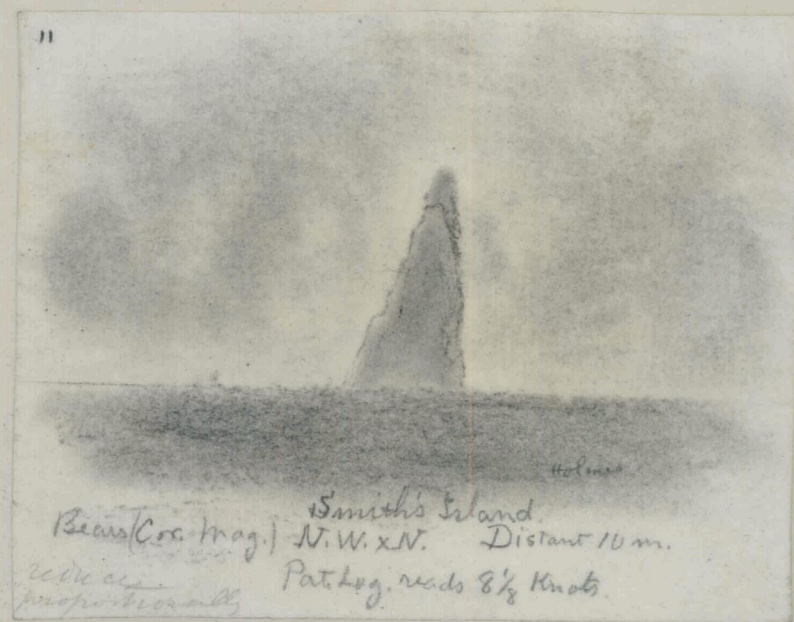 11
Holmes
Smith's Island.
Bears (Cor. Mag.) N.W. x N. Distant 10 m.
Pat. Log. reads 8⅛ Knots.
reduce
proportionally